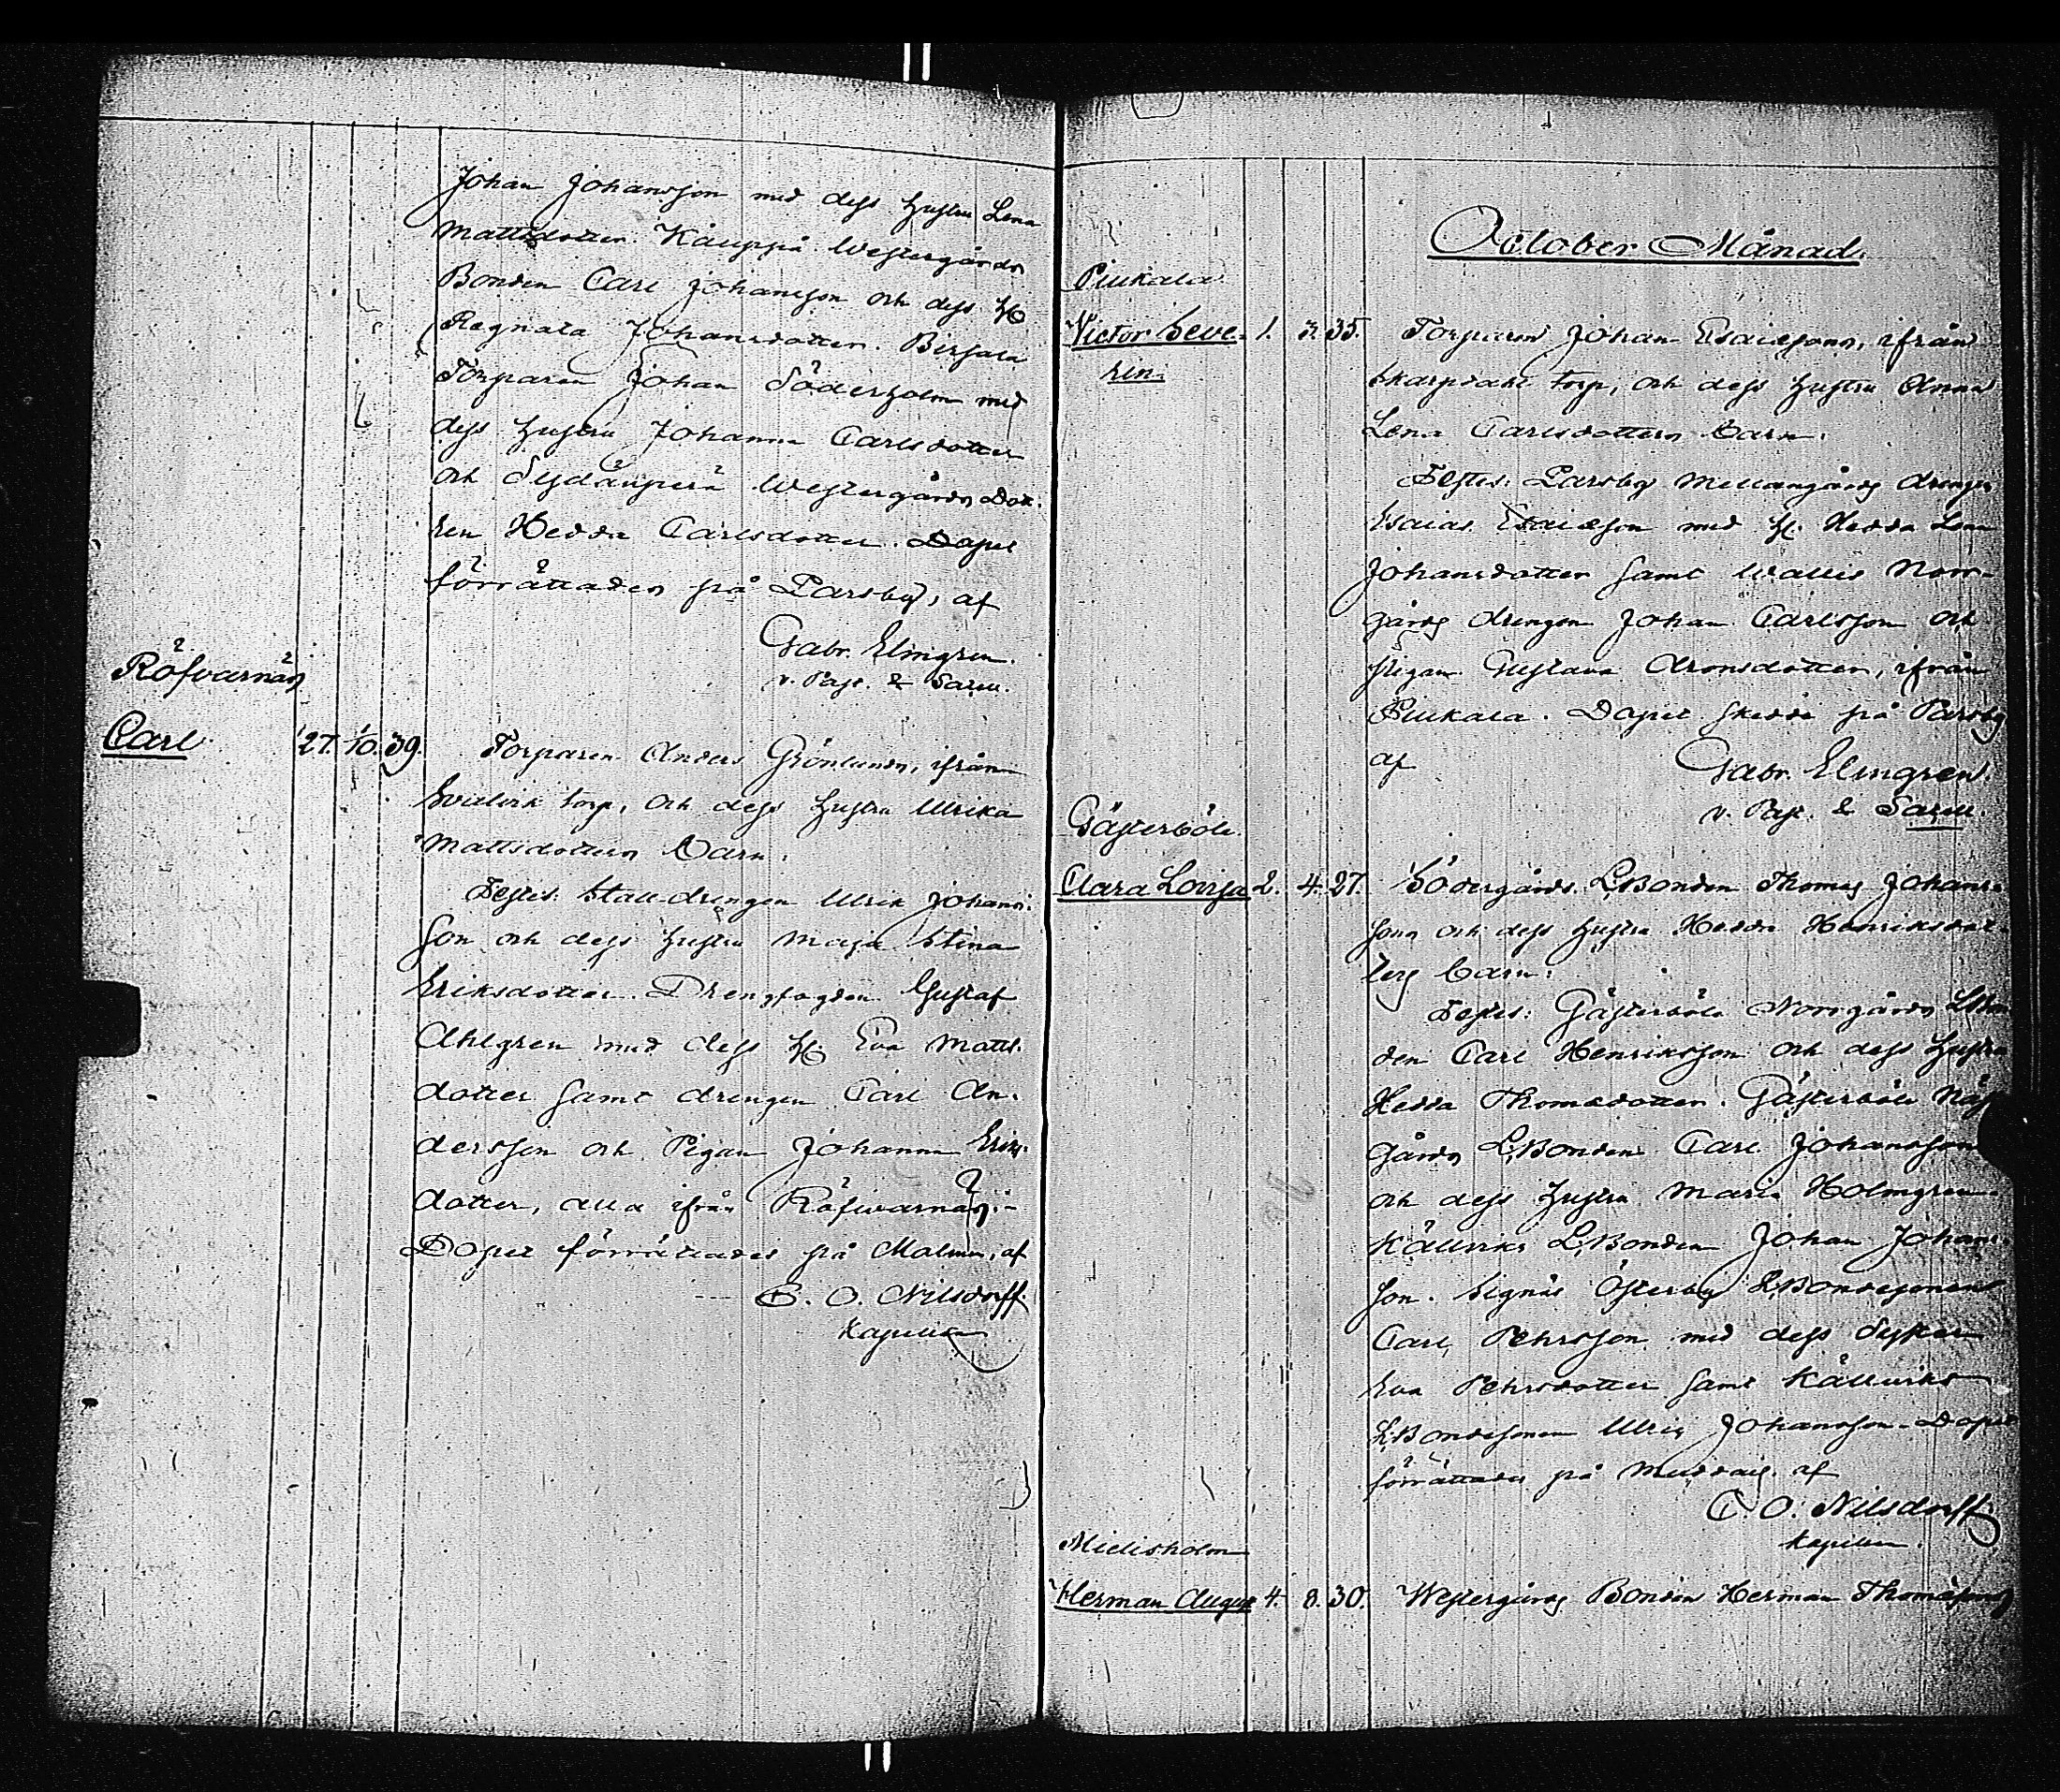 Johan Johansson med dess hustru Lena
Mattsdotter. Kauppå Westergårds
Bonden Carl Johansson och dess H.
Regnata Johansdotter. Persala
Torparen Johan Söderholm med
dess hustru Johanna Carlsdotter
och Sydänperä Westergårds Dot-
ren Hedda Carlsdotter. Dopet
förrättades på Parsby, af
Gabr. Elmgren.
v. Past. & Sacell.
Röfvarnäs
Carl 27. 10. 39. Torparen Anders Grönlunds, ifrån
torp, och dess hustru Ulrika
Mattsdotters Barn.
Testes: Stalldrengen Ulrik Johans-
son och dess hustru Maja Stina
Eriksdotter. Drengfogden Gustaf
Ahlgren med dess H. Eva Matts-
dotter samt drengen Carl An-
dersson och Pigan Johanna Eriks-
dotter, alla ifrån Röfwarnäs.-
Dopet förrättades på Malmen, af
C. O. Nilsdorff.
Kapellan
October Månad.
Piukala
Victor Seve- 1. 3. 35. Torparen Johan Esaiassons, ifrån
rin. Skarpdahl torp, och dess hustru Anna
Lena Carlsdotters Barn.
Testes: Parsby Mellangårds drengen
Esaias Esaiasson med H. Hedda Lena
Johansdotter samt Wallis Norr-
gårds drengen Johan Carlsson och
Pigan Gustava Aronsdotter, ifrån
Piukala. Dopet skedde på Parsby
af Gabr. Elmgren.
v. Past. & Sacell.
Gästerböle.
Clara Lovisa 2. 4. 27. Södergårds L.Bonden Thomas Johans-
sons och dess hustru Hedda Henriksdot-
ters Barn.
Testes: Gästerböle Norrgårds LBon
den Carl Henriksson och dess hustru
Hedda Thomasdotter. Gästerböle Näs
gårds L.Bonden Carl Johansson
och dess hustru Maria Holmgren.
Källviks L.Bonden Johan Johans-
son. Signäs Österby L.Bondesonen
Carl Pehrsson med dess Syster
Eva Pehrsdotter samt Källviks
L.Bondesonen Ulric Johansson. Dopet
förrättades på af
C. O. Nilsdorff.
Kapellan.
Mielisholm
Herman August 4. 8. 30. Westergårds Bonden Herman Thomassons